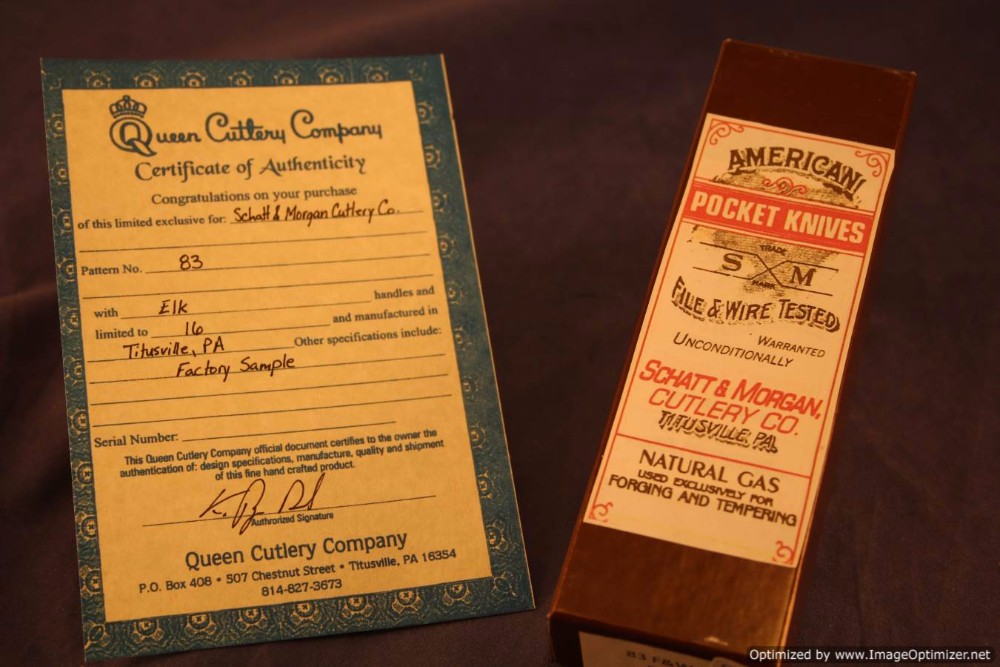 Queen Cutlery Company
Certificate of Authenticity
Congratulations on your purchase
of this limited exclusive for: Schatt & Morgan Cutlery Co.
Pattern No. 83
with Elk handles and
limited to 16 and manufactured in
Titusville, PA Other specifications include:
Factory Sample
Serial Number:
This Queen Cutlery Company official document certifies to the owner the
authentication of: design specifications, manufacture, quality and shipment
of this fine hand crafted product.
Authrorized Signature
Queen Cutlery Company
P.O. Box 408 • 507 Chestnut Street • Titusville, PA 16354
814-827-3673
AMERICAN
POCKET KNIVES
TRADE
S M
MARK
FILE & WIRE TESTED
WARRANTED
UNCONDITIONALLY
SCHATT & MORGAN,
CUTLERY CO.
TITUSVILLE, PA.
NATURAL GAS
USED EXCLUSIVELY FOR
FORGING AND TEMPERING
83
Optimized by www.ImageOptimizer.net